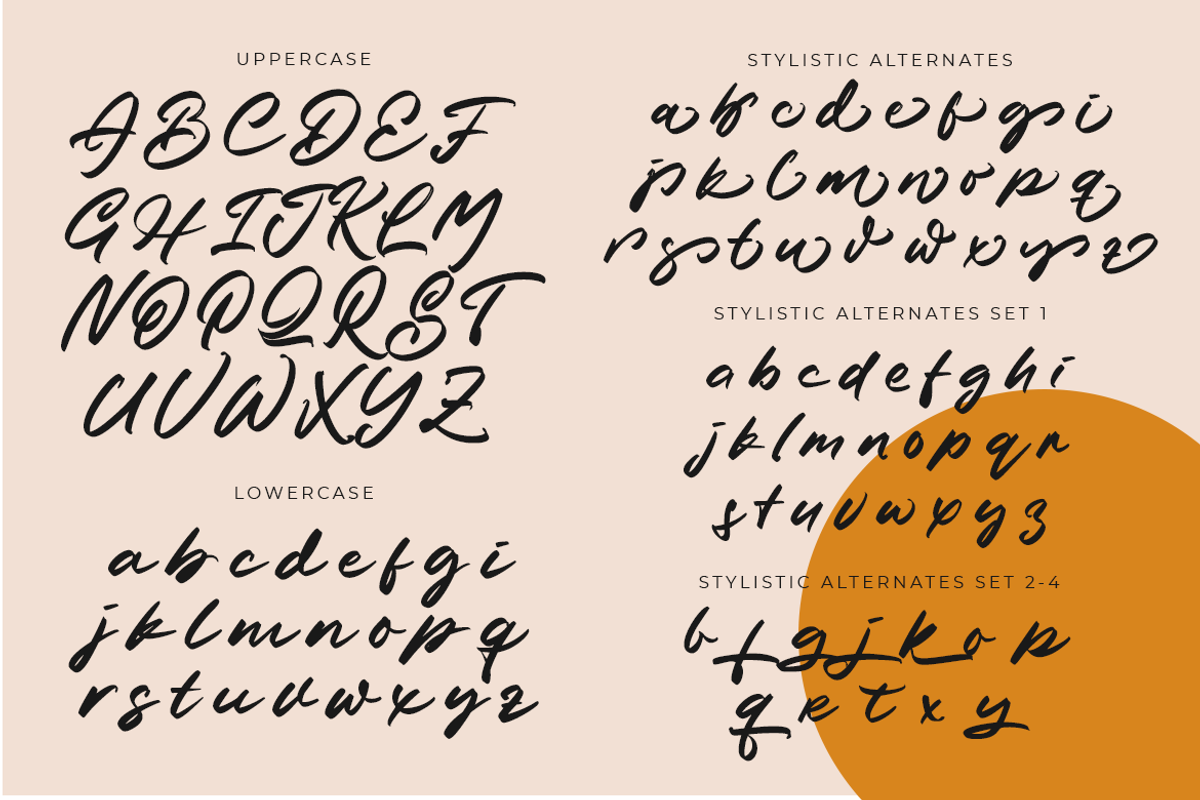 UPPERCASE
A B C D E F
G H I J K L M
N O P Q R S T
U V W X Y Z
LOWERCASE
a b c d e f g i
j k l m n o p q
r s t u v w x y z
STYLISTIC ALTERNATES
a b c d e f g i
j k l m n o p q
r s t u v w x y z
STYLISTIC ALTERNATES SET 1
a b c d e f g h i
j k l m n o p q r
s t u v w x y z
STYLISTIC ALTERNATES SET 2-4
b f g j k o p
q e t x y